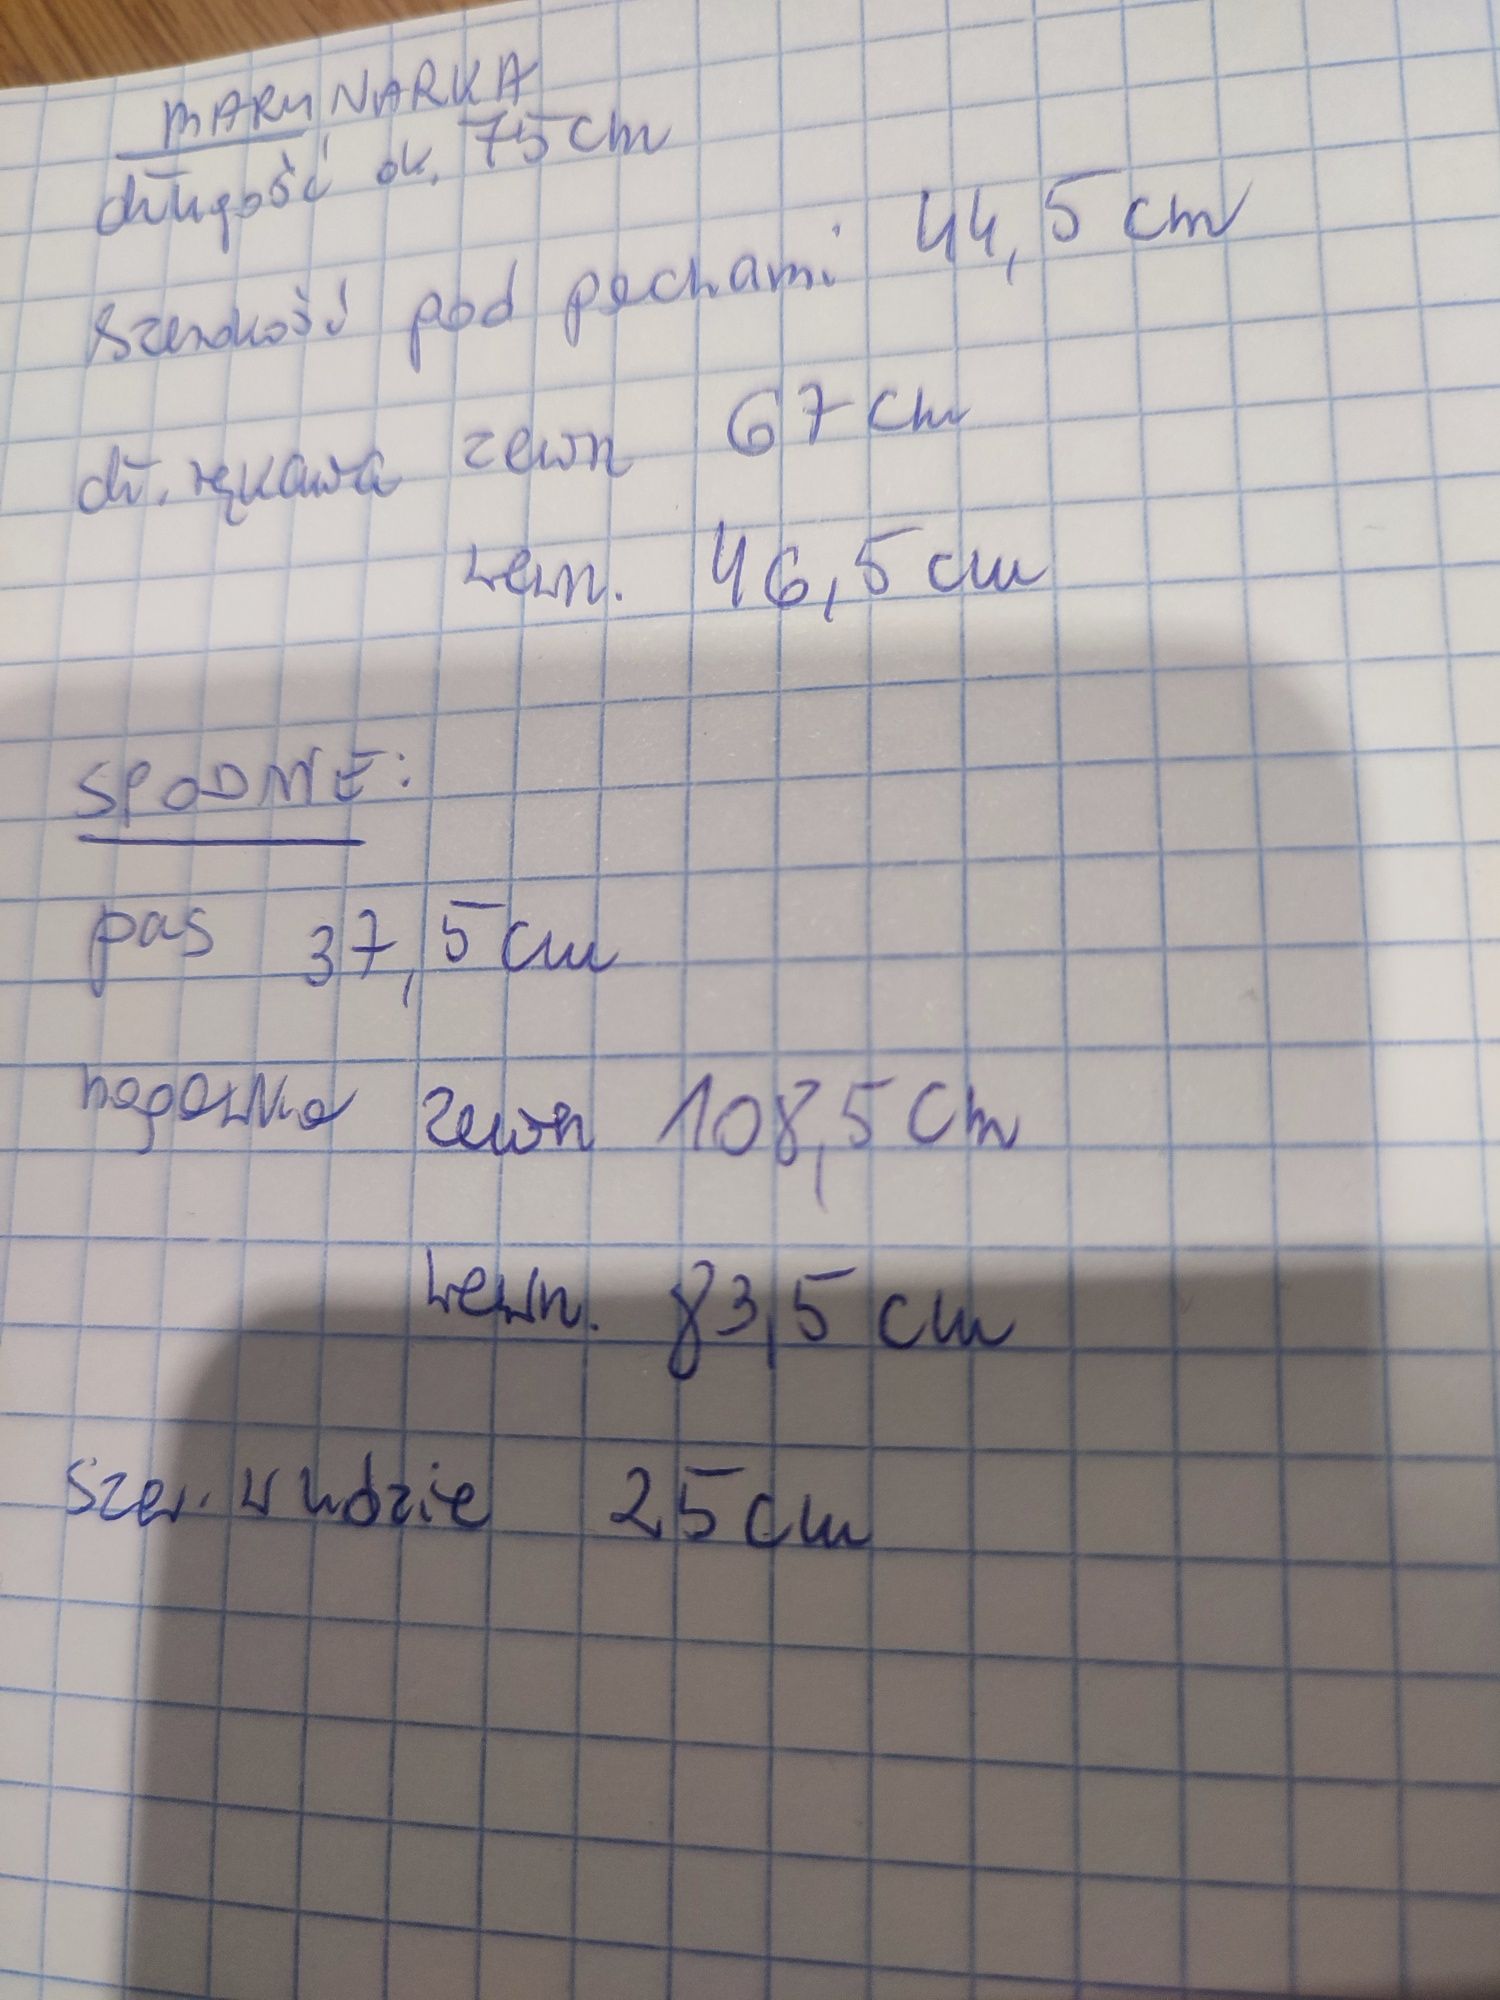 MARYNARKA
długość ok. 75 cm
szerokość pod pachami 44,5 cm
dł. rękawa zewn 67 cm
wewn. 46,5 cm
SPODNIE:
pas 37,5 cm
nogawka zewn 108,5 cm
wewn. 83,5 cm
szer. w udzie 25 cm